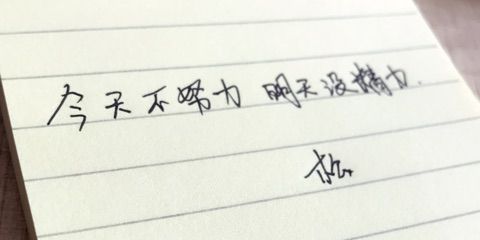 今天不努力 明天没精力.